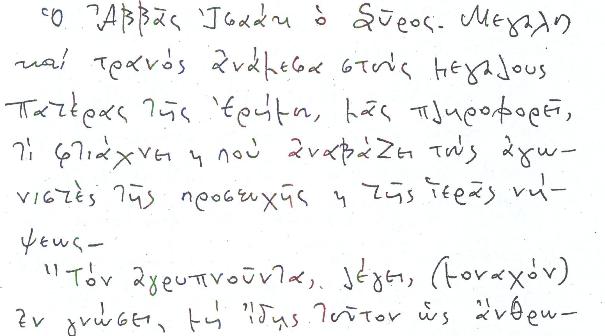 Ὁ Ἀββᾶς Ἰσαὰκ ὁ Σῦρος. Μεγάλη
καί τρανός ἀνάμεσα στούς μεγάλους
Πατέρας τῆς Ἐρήμου, μᾶς πληροφορεῖ,
τί φτιάχνει η πού ἀναβάζει τούς ἀγω-
νιστὲς τῆς προσευχῆς η τῆς ἱερᾶς νή-
ψεως-
"Τόν ἀγρυπνοῦντα, λέγει, (μοναχόν)
ἐν γνώσει, μή ἴδῃς τοῦτον ὡς ἄνθρω-